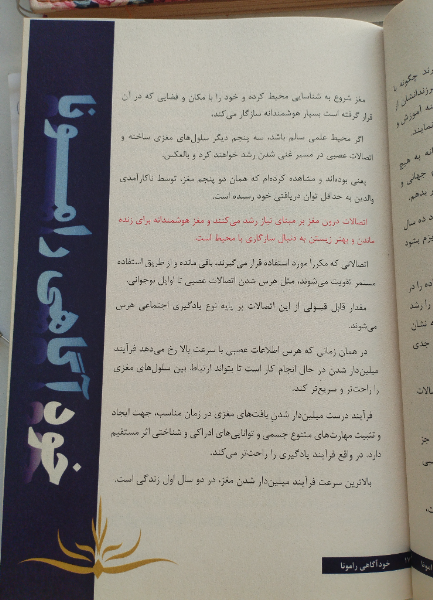 مغز شروع به شناسایی محیط کرده و خود را با مکان و فضایی که در آن
قرار گرفته است بسیار هوشمندانه سازگار می‌کند.
اگر محیط علمی سالم باشد، سه پنجم دیگر سلول‌های مغزی ساخته و
اتصالات عصبی در مسیر غنی شدن رشد خواهند کرد و بالعکس.
یعنی بوده‌اند و مشاهده کرده‌ام که همان دو پنجم مغز، توسط ناکارآمدی
والدین به حداقل توان دریافتی خود رسیده است.
اتصالات درون مغز بر مبنای نیاز رشد می‌کنند و مغز هوشمندانه برای زنده
ماندن و بهتر زیستن به دنبال سازگاری با محیط است.
اتصالاتی که مکررا مورد استفاده قرار می‌گیرند، باقی مانده و از طریق استفاده
مستمر تقویت می‌شوند، مثل هرس شدن اتصالات عصبی تا اوایل نوجوانی.
مقدار قابل قبولی از این اتصالات بر پایه نوع یادگیری اجتماعی هرس
می‌شوند.
در همان زمانی که هرس اطلاعات عصبی با سرعت بالا رخ می‌دهد فرآیند
میلین‌دار شدن در حال انجام کار است تا بتواند ارتباط بین سلول‌های مغزی
را راحت‌تر و سریع‌تر کند.
فرآیند درست میلین‌دار شدن بافت‌های مغزی در زمان مناسب، جهت ایجاد
و تثبیت مهارت‌های متنوع جسمی و توانایی‌های ادراکی و شناختی اثر مستقیم
دارد. در واقع فرآیند یادگیری را راحت‌تر می‌کند.
بالاترین سرعت فرآیند میلین‌دار شدن مغز، در دو سال اول زندگی است.
خود آگاهی رامونا
خود آگاهی رامونا
رند چگونه با
رزندانشان از
ند آموزش و
نمایند.
انه به هیچ
ی جهانی و
بدهم.
د ده سال
یرم بشود
ده را در
را رشد
ه نشان
جدی
صالات
جز